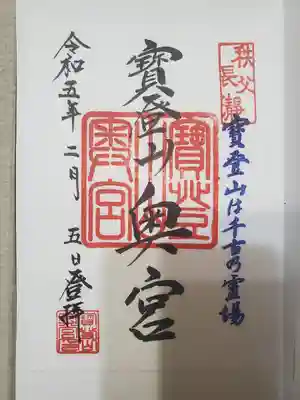 秩父
長瀞
寶登山は千古の霊場
寶登山奥宮
寶登山
奥宮
令和五年二月五日登拝